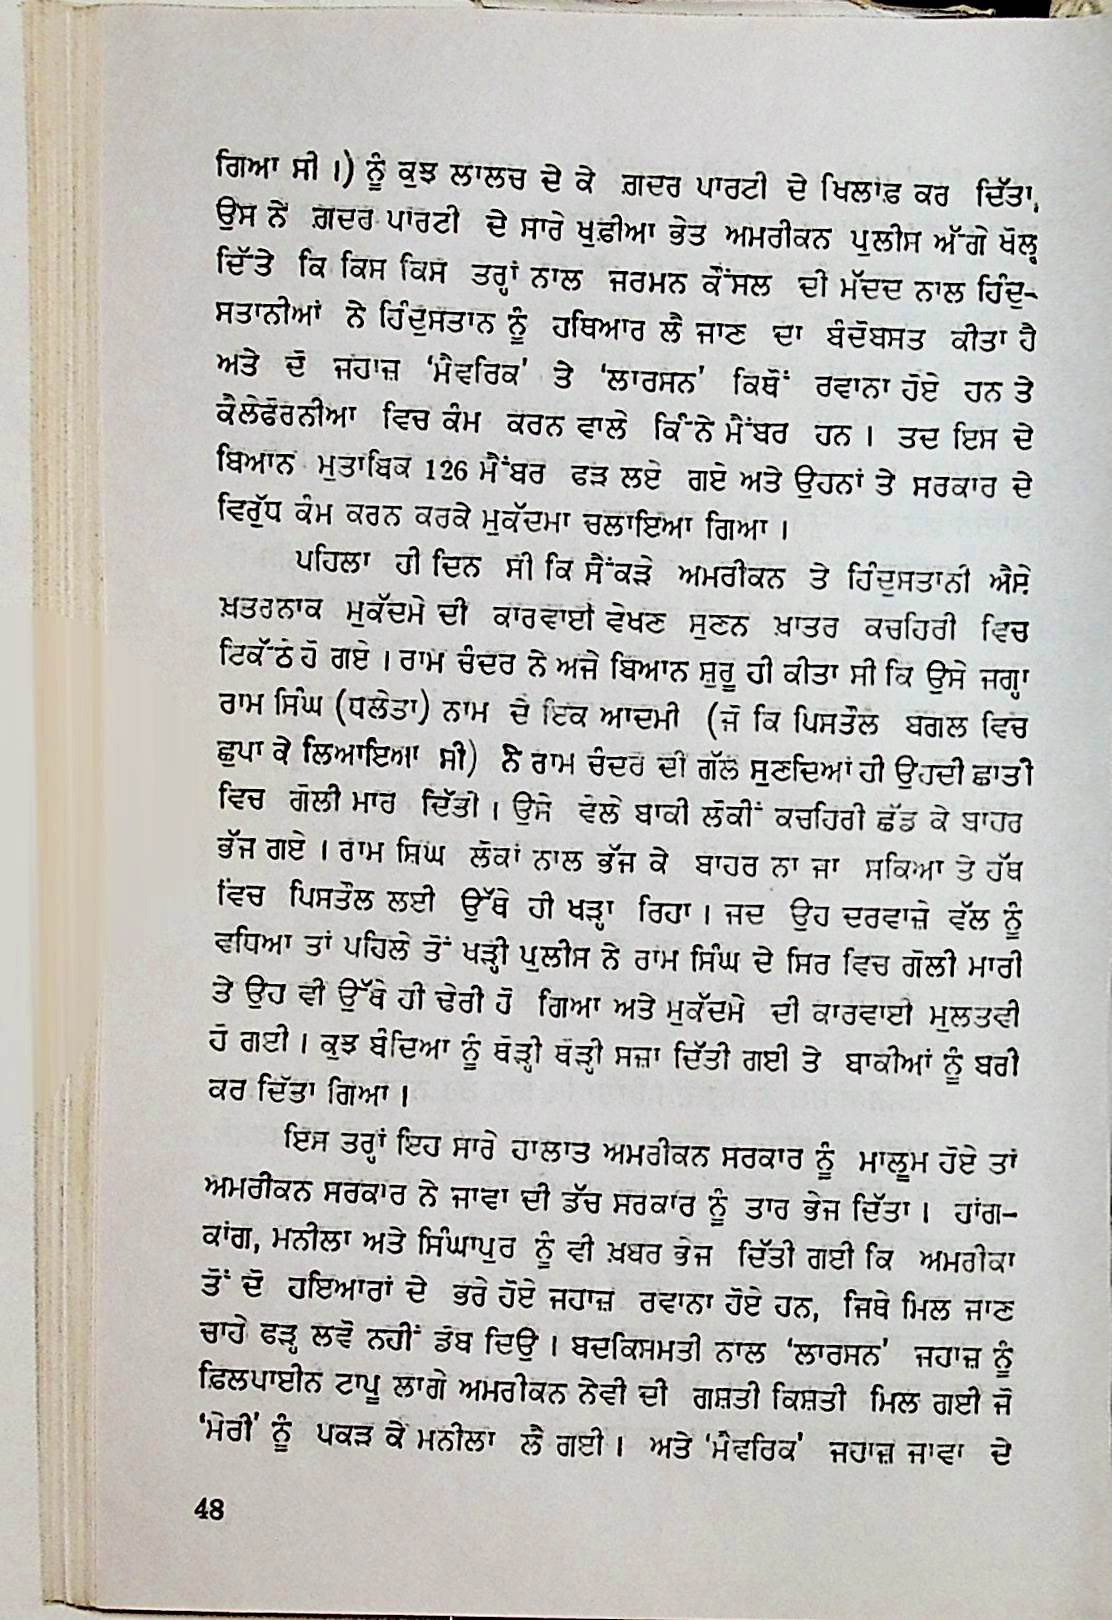 ਗਿਆ ਸੀ ।) ਨੂੰ ਕੁਝ ਲਾਲਚ ਦੇ ਕੇ ਗ਼ਦਰ ਪਾਰਟੀ ਦੇ ਖਿਲਾਫ਼ ਕਰ ਦਿੱਤਾ,
ਉਸ ਨੇ ਗ਼ਦਰ ਪਾਰਟੀ ਦੇ ਸਾਰੇ ਖੁਫ਼ੀਆ ਭੇਤ ਅਮਰੀਕਨ ਪੁਲੀਸ ਅੱਗੇ ਖੋਲ੍ਹ
ਦਿੱਤੇ ਕਿ ਕਿਸ ਕਿਸ ਤਰ੍ਹਾਂ ਨਾਲ ਜਰਮਨ ਕੌਂਸਲ ਦੀ ਮੱਦਦ ਨਾਲ ਹਿੰਦੁ-
ਸਤਾਨੀਆਂ ਨੇ ਹਿੰਦੁਸਤਾਨ ਨੂੰ ਹਥਿਆਰ ਲੈ ਜਾਣ ਦਾ ਬੰਦੋਬਸਤ ਕੀਤਾ ਹੈ
ਅਤੇ ਦੋ ਜਹਾਜ਼ ‘ਮੈਵਰਿਕ’ ਤੇ ‘ਲਾਰਸਨ’ ਕਿਥੋਂ ਰਵਾਨਾ ਹੋਏ ਹਨ ਤੇ
ਕੈਲੇਫੋਰਨੀਆ ਵਿਚ ਕੰਮ ਕਰਨ ਵਾਲੇ ਕਿੰਨੇ ਮੈਂਬਰ ਹਨ । ਤਦ ਇਸ ਦੇ
ਬਿਆਨ ਮੁਤਾਬਿਕ 126 ਮੈਂਬਰ ਫੜ ਲਏ ਗਏ ਅਤੇ ਉਹਨਾਂ ਤੇ ਸਰਕਾਰ ਦੇ
ਵਿਰੁੱਧ ਕੰਮ ਕਰਨ ਕਰਕੇ ਮੁਕੱਦਮਾ ਚਲਾਇਆ ਗਿਆ ।
ਪਹਿਲਾ ਹੀ ਦਿਨ ਸੀ ਕਿ ਸੈਂਕੜੇ ਅਮਰੀਕਨ ਤੇ ਹਿੰਦੁਸਤਾਨੀ ਐਸੇ
ਖ਼ਤਰਨਾਕ ਮੁਕੱਦਮੇ ਦੀ ਕਾਰਵਾਈ ਵੇਖਣ ਸੁਣਨ ਖ਼ਾਤਰ ਕਚਹਿਰੀ ਵਿਚ
ਇਕੱਠੇ ਹੋ ਗਏ । ਰਾਮ ਚੰਦਰ ਨੇ ਅਜੇ ਬਿਆਨ ਸ਼ੁਰੂ ਹੀ ਕੀਤਾ ਸੀ ਕਿ ਉਸੇ ਜਗ੍ਹਾ
ਰਾਮ ਸਿੰਘ (ਧਲੇਤਾ) ਨਾਮ ਦੇ ਇਕ ਆਦਮੀ (ਜੋ ਕਿ ਪਿਸਤੌਲ ਬਗਲ ਵਿਚ
ਛੁਪਾ ਕੇ ਲਿਆਇਆ ਸੀ) ਨੇ ਰਾਮ ਚੰਦਰ ਦੀ ਗੱਲ ਸੁਣਦਿਆਂ ਹੀ ਉਹਦੀ ਛਾਤੀ
ਵਿਚ ਗੋਲੀ ਮਾਰ ਦਿੱਤੀ । ਉਸੇ ਵੇਲੇ ਬਾਕੀ ਲੋਕੀਂ ਕਚਹਿਰੀ ਛੱਡ ਕੇ ਬਾਹਰ
ਭੱਜ ਗਏ । ਰਾਮ ਸਿੰਘ ਲੋਕਾਂ ਨਾਲ ਭੱਜ ਕੇ ਬਾਹਰ ਨਾ ਜਾ ਸਕਿਆ ਤੇ ਹੱਥ
ਵਿਚ ਪਿਸਤੌਲ ਲਈ ਉੱਥੇ ਹੀ ਖੜ੍ਹਾ ਰਿਹਾ । ਜਦ ਉਹ ਦਰਵਾਜ਼ੇ ਵੱਲ ਨੂੰ
ਵਧਿਆ ਤਾਂ ਪਹਿਲੇ ਤੋਂ ਖੜ੍ਹੀ ਪੁਲੀਸ ਨੇ ਰਾਮ ਸਿੰਘ ਦੇ ਸਿਰ ਵਿਚ ਗੋਲੀ ਮਾਰੀ
ਤੇ ਉਹ ਵੀ ਉੱਥੇ ਹੀ ਢੇਰੀ ਹੋ ਗਿਆ ਅਤੇ ਮੁਕੱਦਮੇ ਦੀ ਕਾਰਵਾਈ ਮੁਲਤਵੀ
ਹੋ ਗਈ । ਕੁਝ ਬੰਦਿਆ ਨੂੰ ਥੋੜ੍ਹੀ ਥੋੜ੍ਹੀ ਸਜ਼ਾ ਦਿੱਤੀ ਗਈ ਤੇ ਬਾਕੀਆਂ ਨੂੰ ਬਰੀ
ਕਰ ਦਿੱਤਾ ਗਿਆ ।
ਇਸ ਤਰ੍ਹਾਂ ਇਹ ਸਾਰੇ ਹਾਲਾਤ ਅਮਰੀਕਨ ਸਰਕਾਰ ਨੂੰ ਮਾਲੂਮ ਹੋਏ ਤਾਂ
ਅਮਰੀਕਨ ਸਰਕਾਰ ਨੇ ਜਾਵਾ ਦੀ ਡੱਚ ਸਰਕਾਰ ਨੂੰ ਤਾਰ ਭੇਜ ਦਿੱਤਾ । ਹਾਂਗ-
ਕਾਂਗ, ਮਨੀਲਾ ਅਤੇ ਸਿੰਘਾਪੁਰ ਨੂੰ ਵੀ ਖ਼ਬਰ ਭੇਜ ਦਿੱਤੀ ਗਈ ਕਿ ਅਮਰੀਕਾ
ਤੋਂ ਦੋ ਹਇਆਰਾਂ ਦੇ ਭਰੇ ਹੋਏ ਜਹਾਜ਼ ਰਵਾਨਾ ਹੋਏ ਹਨ, ਜਿਥੇ ਮਿਲ ਜਾਣ
ਚਾਹੇ ਫੜ੍ਹ ਲਵੋ ਨਹੀਂ ਡੋਬ ਦਿਉ । ਬਦਕਿਸਮਤੀ ਨਾਲ ‘ਲਾਰਸਨ’ ਜਹਾਜ਼ ਨੂੰ
ਫ਼ਿਲਪਾਈਨ ਟਾਪੂ ਲਾਗੇ ਅਮਰੀਕਨ ਨੇਵੀ ਦੀ ਗਸ਼ਤੀ ਕਿਸ਼ਤੀ ਮਿਲ ਗਈ ਜੋ
‘ਮੇਰੀ’ ਨੂੰ ਪਕੜ ਕੇ ਮਨੀਲਾ ਲੈ ਗਈ । ਅਤੇ ‘ਮੈਵਰਿਕ’ ਜਹਾਜ਼ ਜਾਵਾ ਦੇ
48